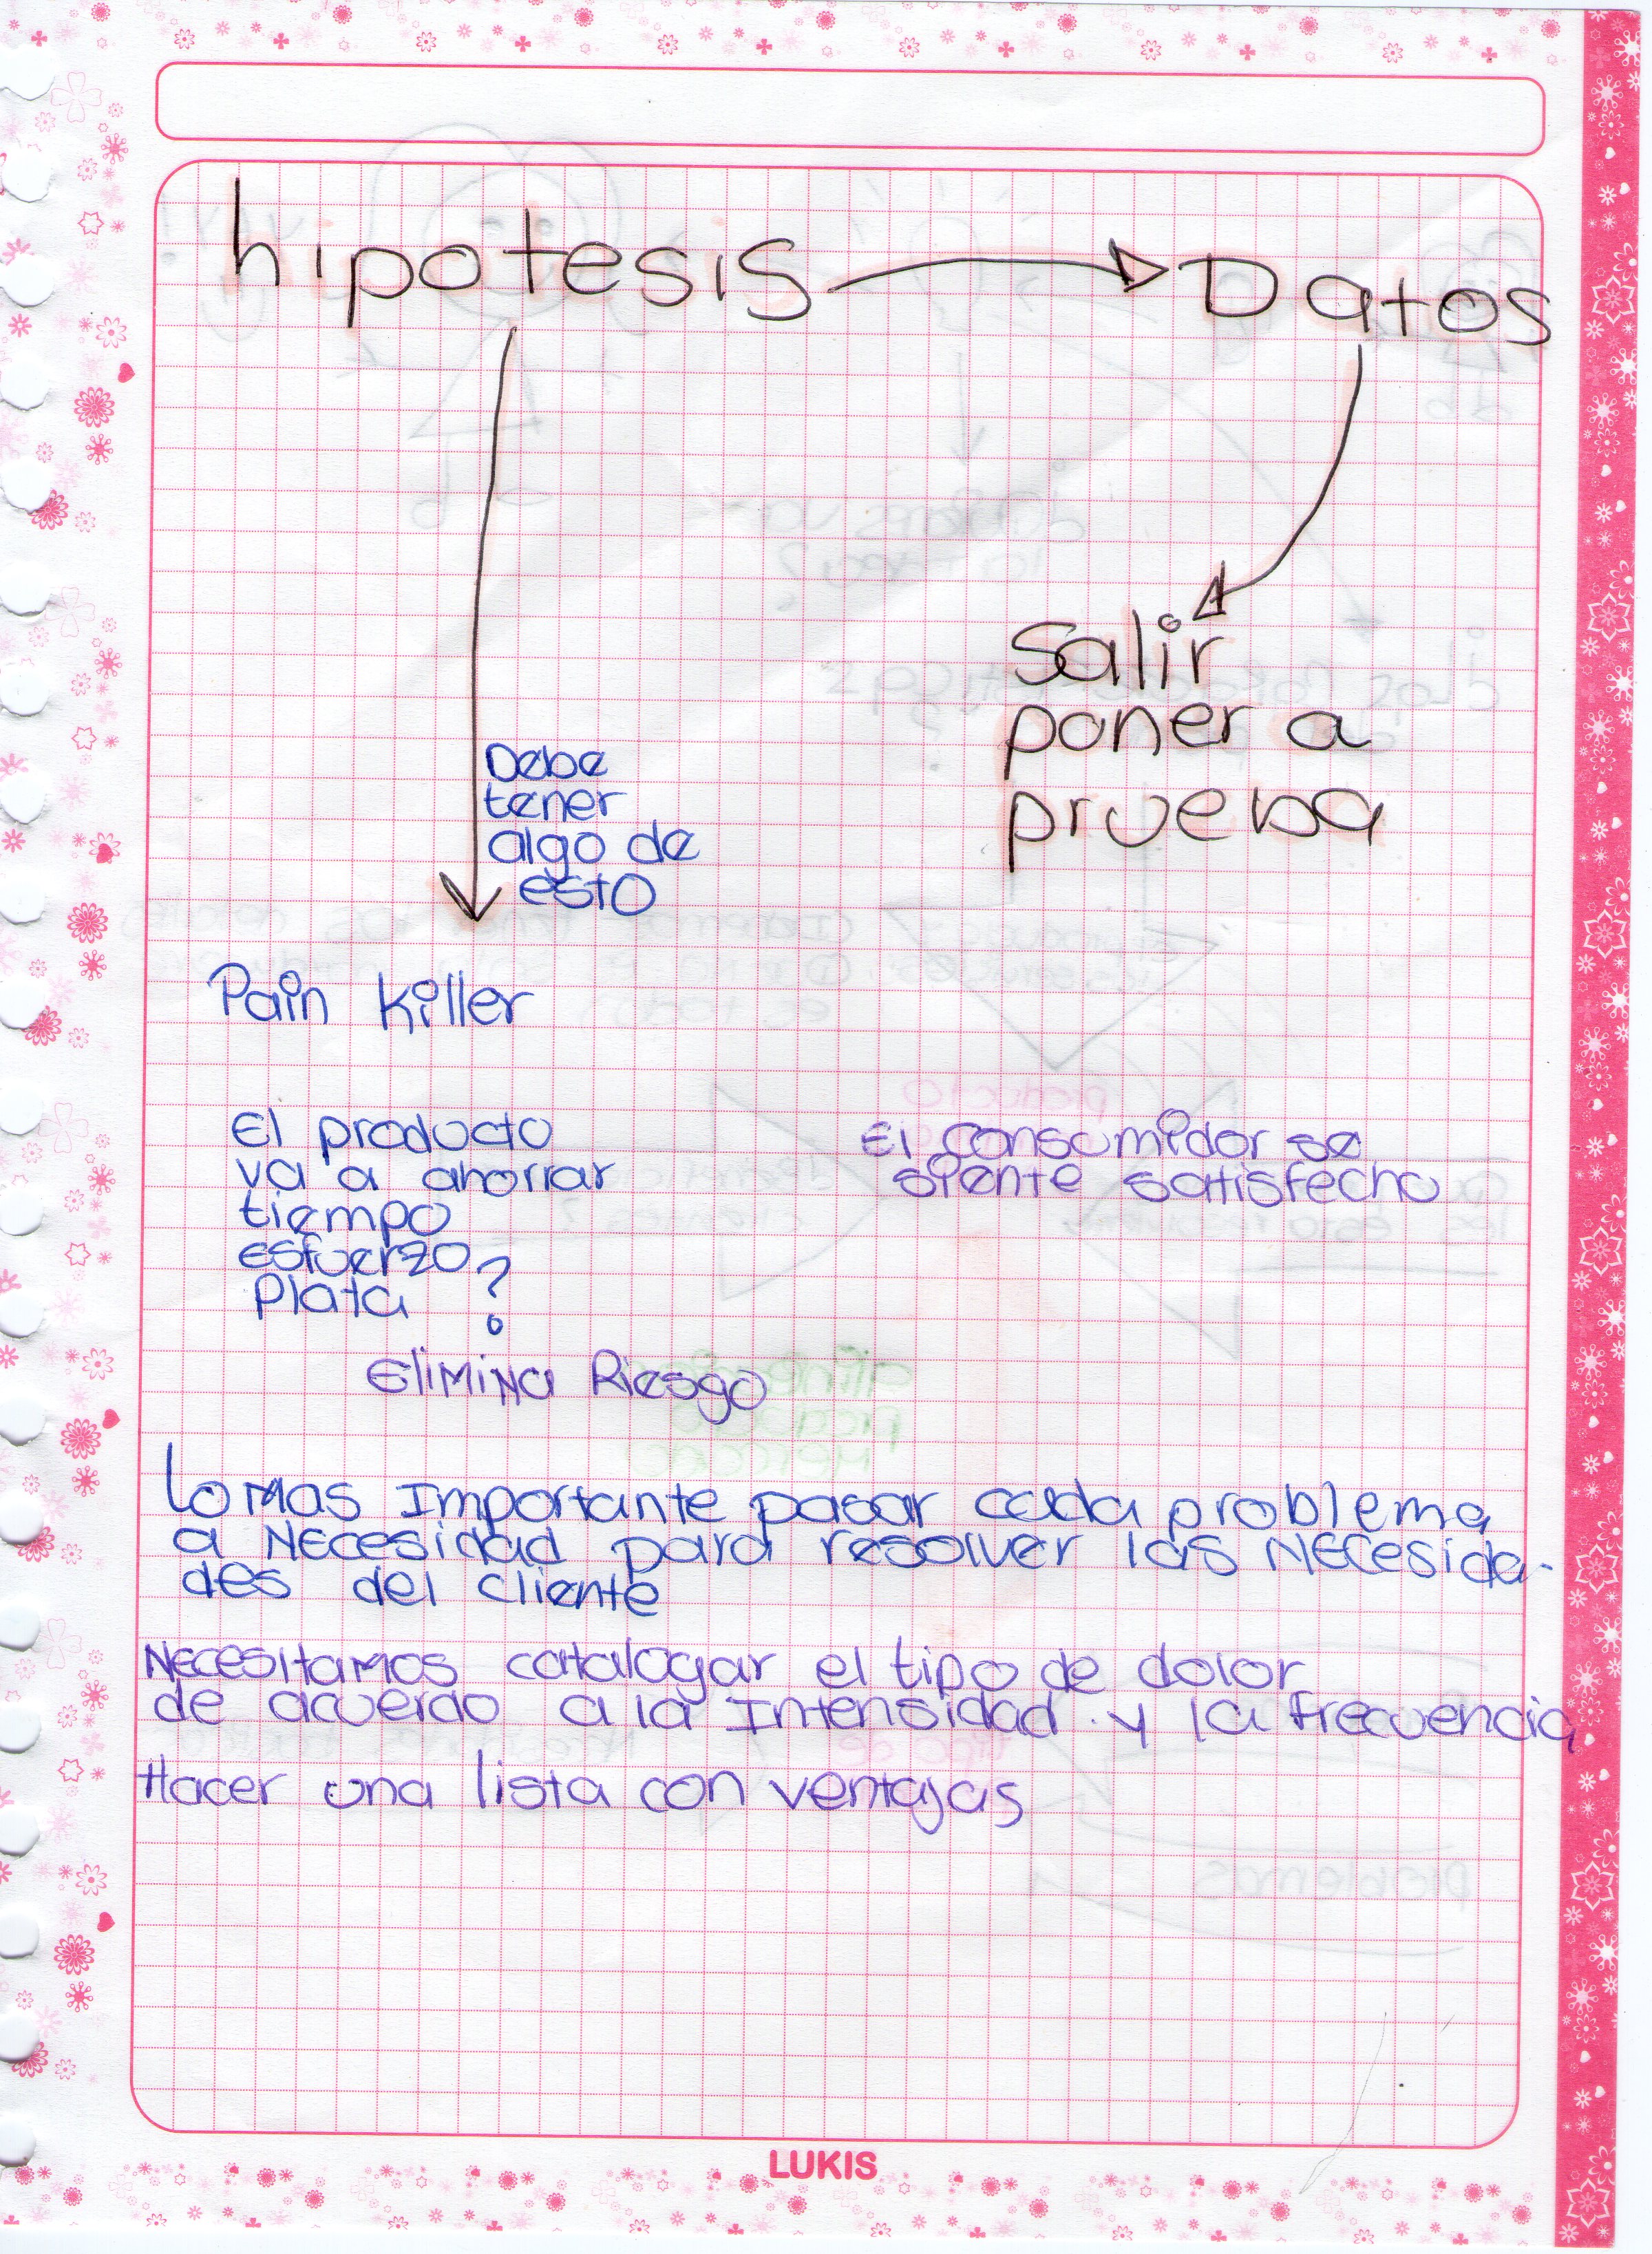 hipotesis Datos
Salir
poner a
prueba
Debe
tener
algo de
esto
Pain Killer
El producto
va a ahorrar
tiempo
esfuerzo
Plata ?
El consumidor se
siente satisfecho
Elimina Riesgo
Lo Mas Importante pasar cada problema
a Necesidad para resolver las Necesida-
des del cliente
Necesitamos catalogar el tipo de dolor
de acuerdo a la Intensidad y la frecuencia
Hacer una lista con ventajas
LUKIS